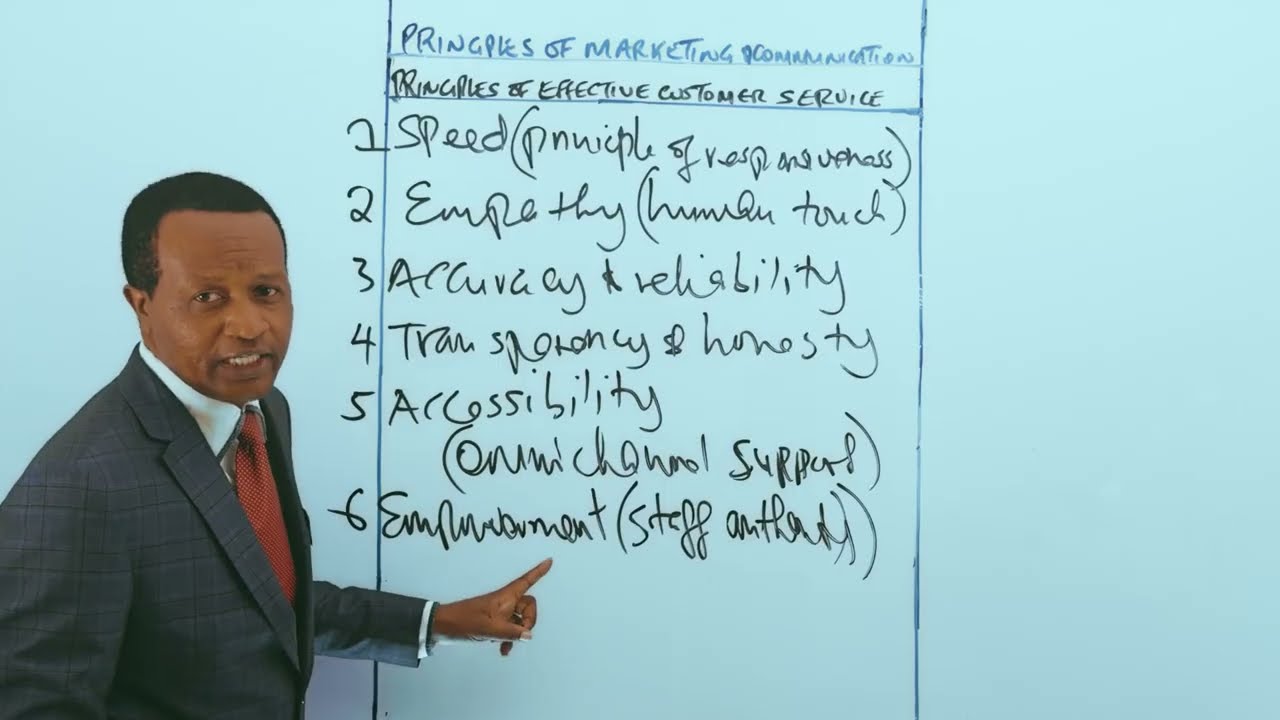 PRINCIPLES OF MARKETING COMMUNICATION
PRINCIPLES OF EFFECTIVE CUSTOMER SERVICE
1 Speed (principle of responsiveness)
2 Empathy (human touch)
3 Accuracy & reliability
4 Transparency & honesty
5 Accessibility
(omnichannel support)
6 Empowerment (staff authority)